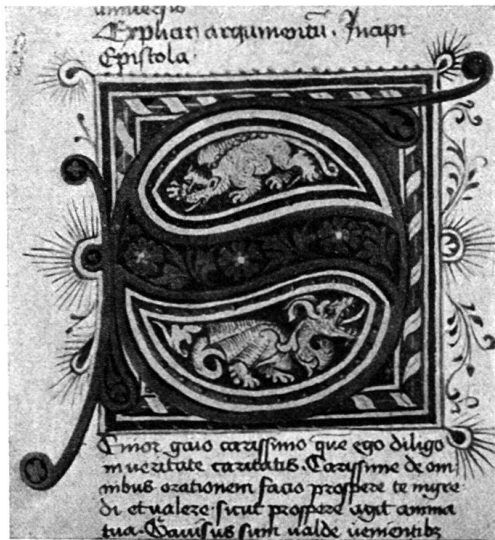 Explicit argumentū. Incipi
Epistola.
S
Enior gaio carissimo que ego diligo
in veritate caritatis. Carissime de om
nibus orationem facio prospere te ingre
di et valere sicut prospere agit anima
tua. Gavisus sum valde venientibz